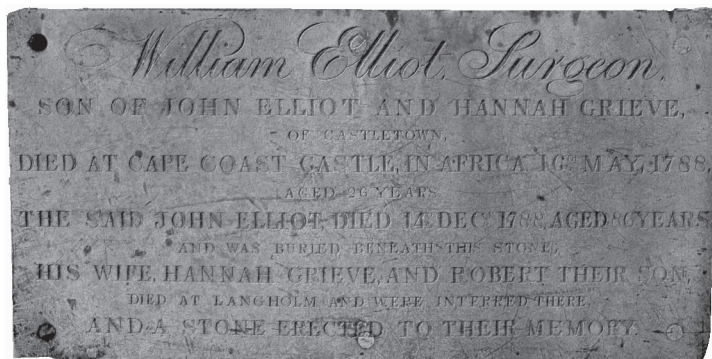 William Elliot, Surgeon,
SON OF JOHN ELLIOT AND HANNAH GRIEVE,
OF CASTLETOWN,
DIED AT CAPE COAST CASTLE, IN AFRICA 16TH MAY, 1788,
AGED 26 YEARS
THE SAID JOHN ELLIOT, DIED 14 DEC. 1788, AGED 86 YEARS
AND WAS BURIED BENEATH THIS STONE,
HIS WIFE, HANNAH GRIEVE, AND ROBERT THEIR SON,
DIED AT LANGHOLM AND WERE INTERRED THERE,
AND A STONE ERECTED TO THEIR MEMORY.